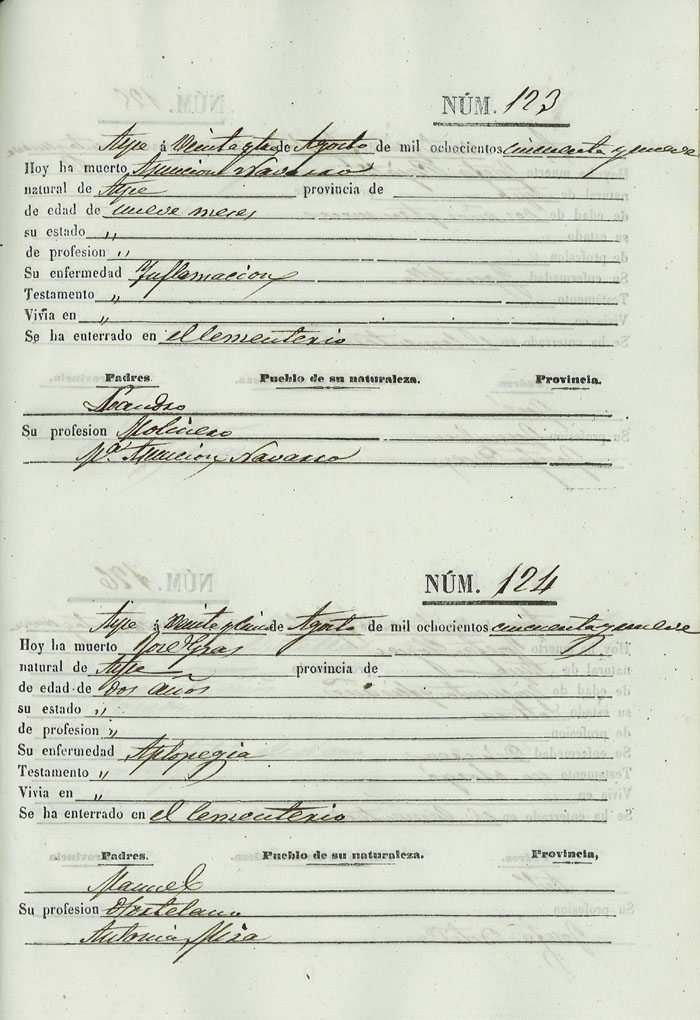 NÚM. 123
Aspe á Veinte y dos de Agosto de mil ochocientos cincuenta y nueve
Hoy ha muerto Asuncion Navarro
natural de Aspe provincia de
de edad de nueve meses
su estado "
de profesion "
Su enfermedad Inflamacion
Testamento "
Vivia en "
Se ha enterrado en el Cementerio
Padres. Pueblo de su naturaleza. Provincia.
Leandro
Su profesion Molinero
Mª Asuncion Navarro
NÚM. 124
Aspe á Veinte y de Agosto de mil ochocientos cincuenta y nueve
Hoy ha muerto José Gras
natural de Aspe provincia de
de edad de dos años
su estado "
de profesion "
Su enfermedad Aplopegia
Testamento "
Vivia en "
Se ha enterrado en el Cementerio
Padres. Pueblo de su naturaleza. Provincia,
Manuel
Su profesion Hortelano
Antonia Mira